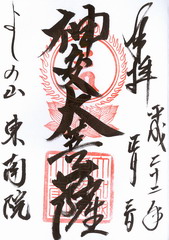 奉拝
平成二十二年
正月三日
神変大菩薩
よしの山
東南院